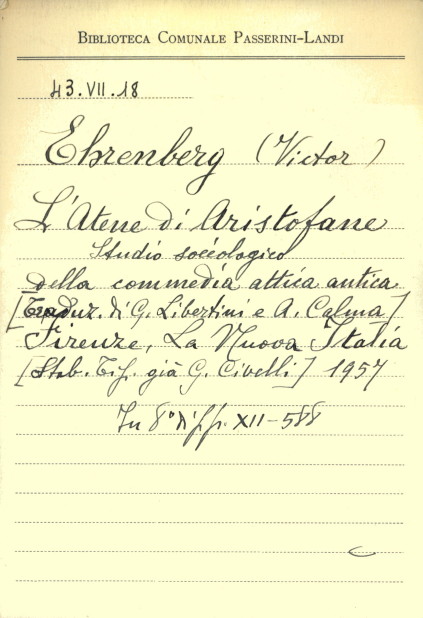 BIBLIOTECA COMUNALE PASSERINI-LANDI
43.VII.18
Ehrenberg (Victor)
L'Atene di Aristofane
Studio sociologico
della commedia attica antica
[Traduz. di G. Libertini e A. Calma]
Firenze, La Nuova Italia
[Stab. Tip. già G. Civelli] 1957
In 8° di pp. XII-588